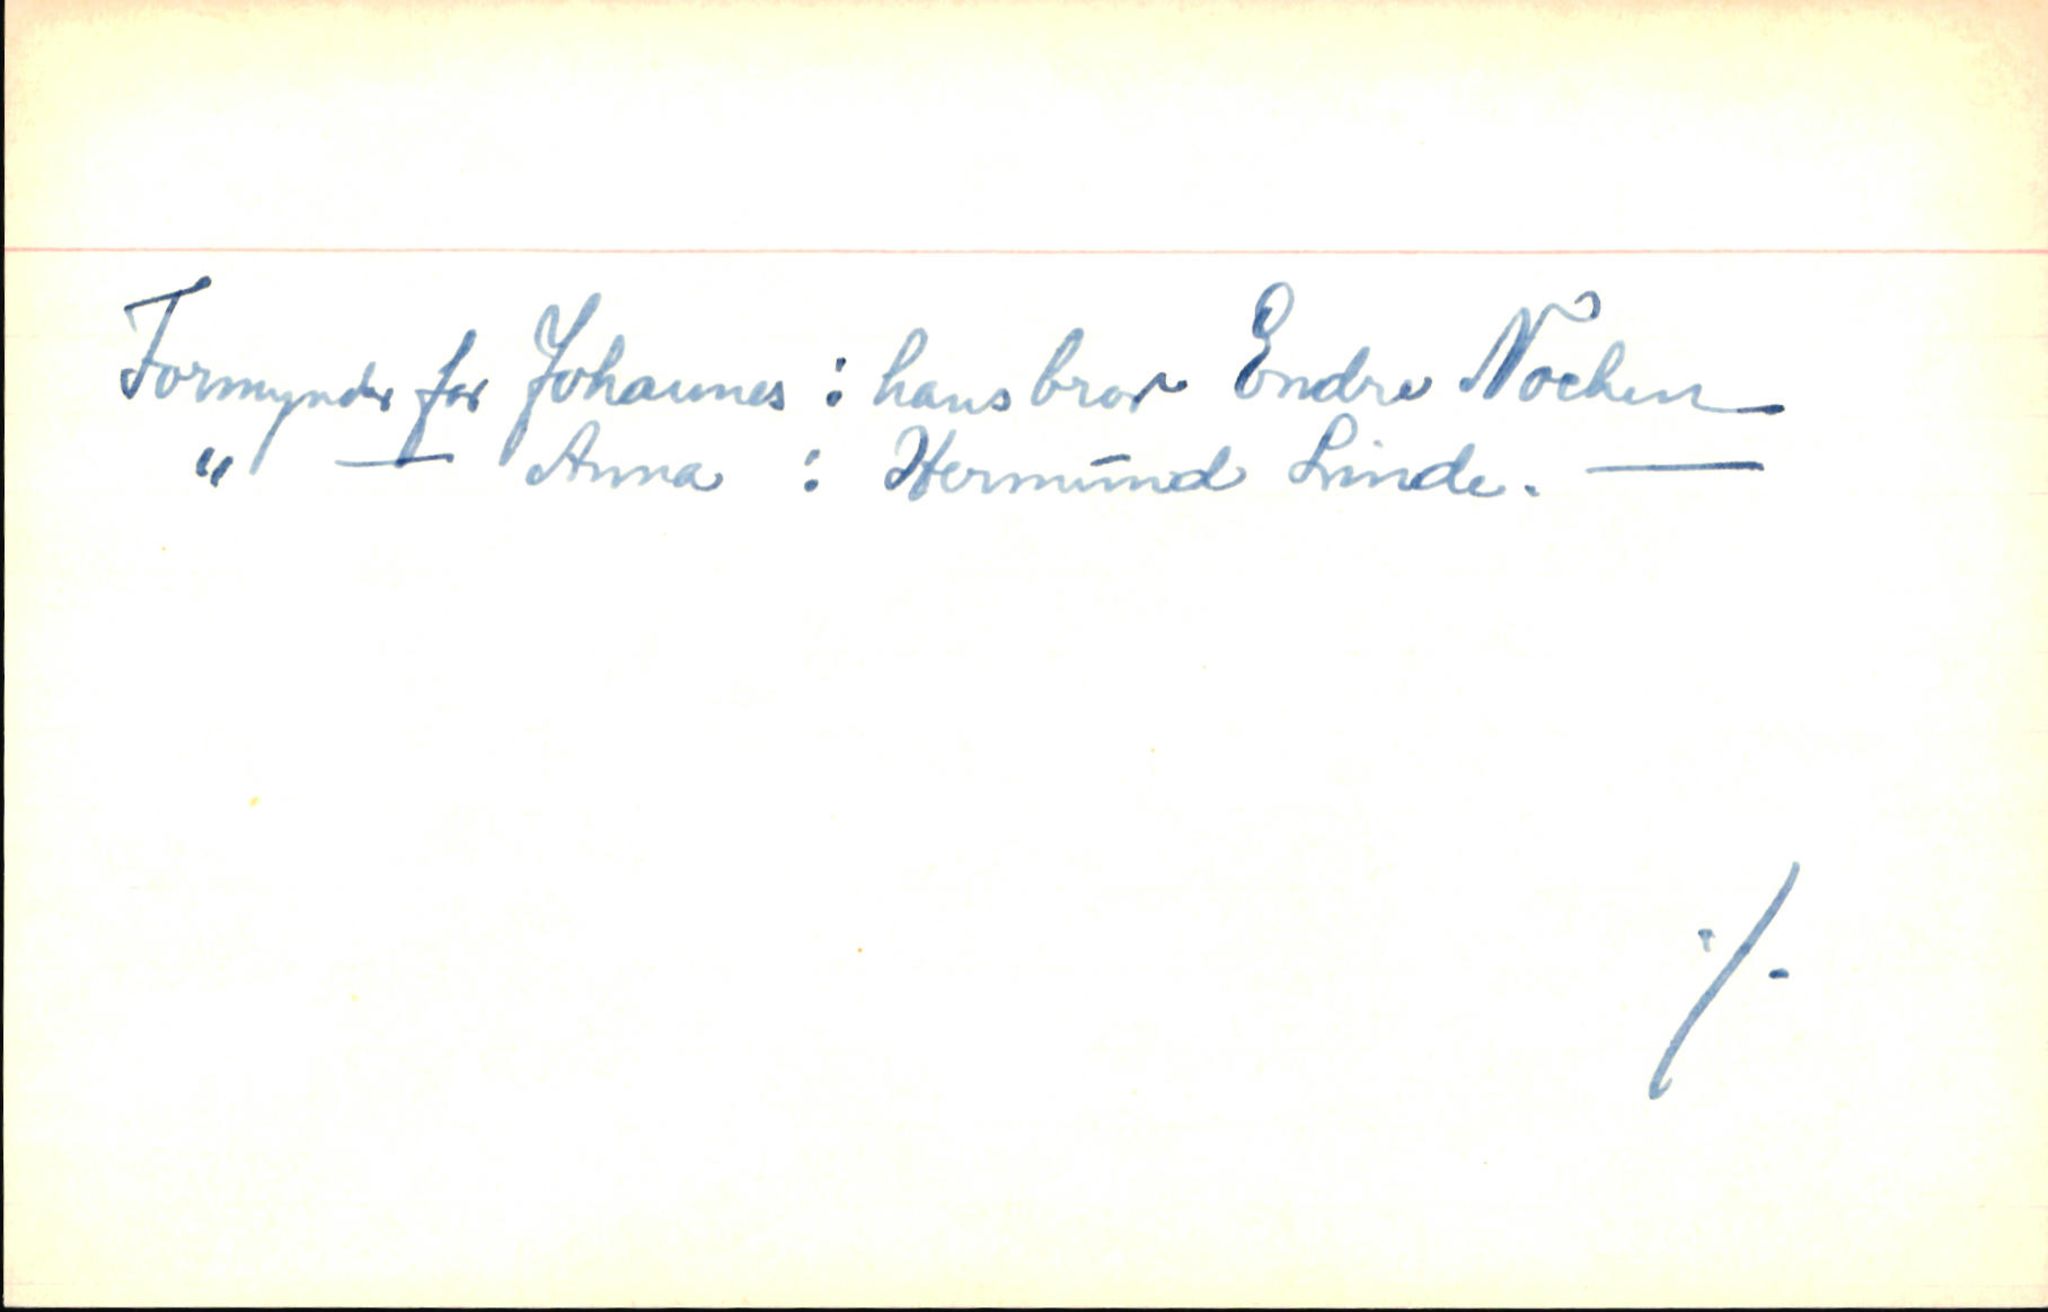 Formynder for Johannes : hans bror Endre Nocken
" — Anna : Hermund Linde. —
./.